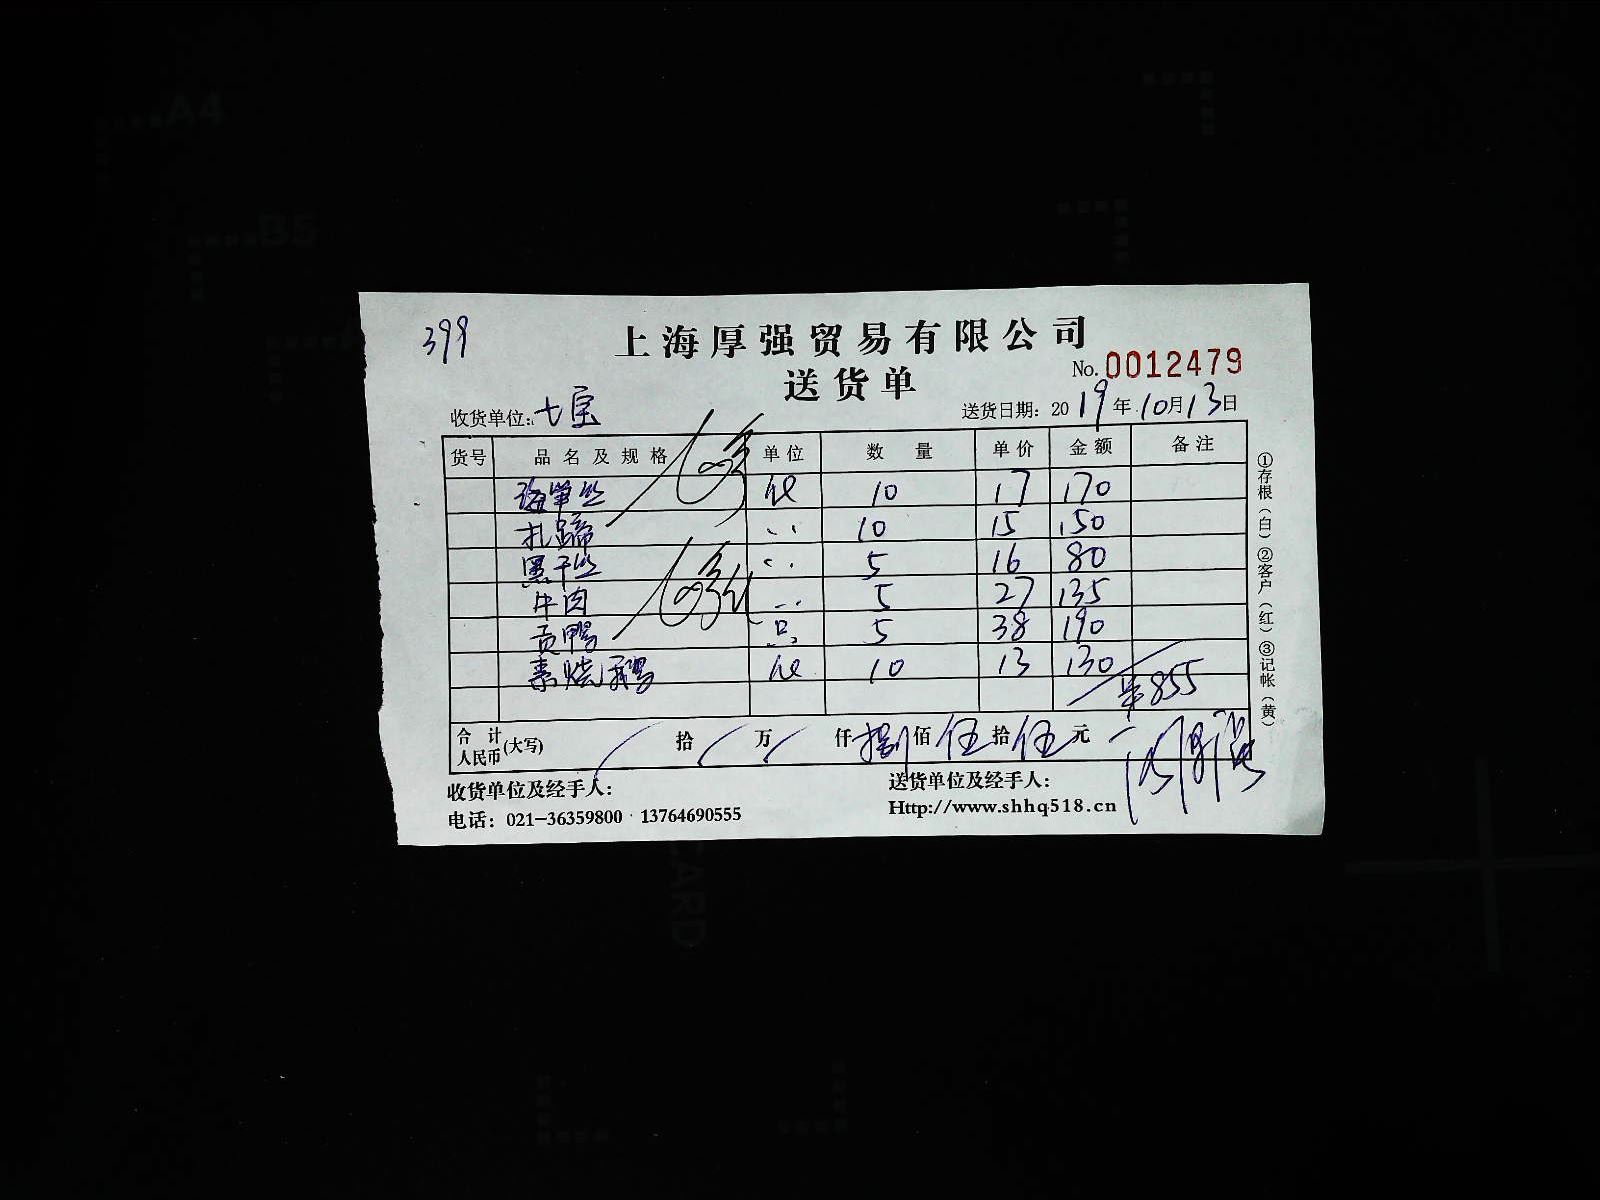 399
上海厚强贸易有限公司
送货单
No. 0012479
收货单位: 七宝
送货日期: 2019年10月13日
货号 品名及规格 单位 数量 单价 金额 备注
海笋丝 10 17 170
扎蹄 〃 10 15 150
黑干丝 〃 5 16 80
牛肉 〃 5 27 135
贡鸭 只 5 38 190
素烧鹅 10 13 130
¥855
合计人民币(大写) 拾 万 仟 捌佰伍拾伍元
收货单位及经手人:
送货单位及经手人:
电话: 021-36359800 13764690555
Http://www.shhq518.cn
①存根(白)②客户(红)③记帐(黄)